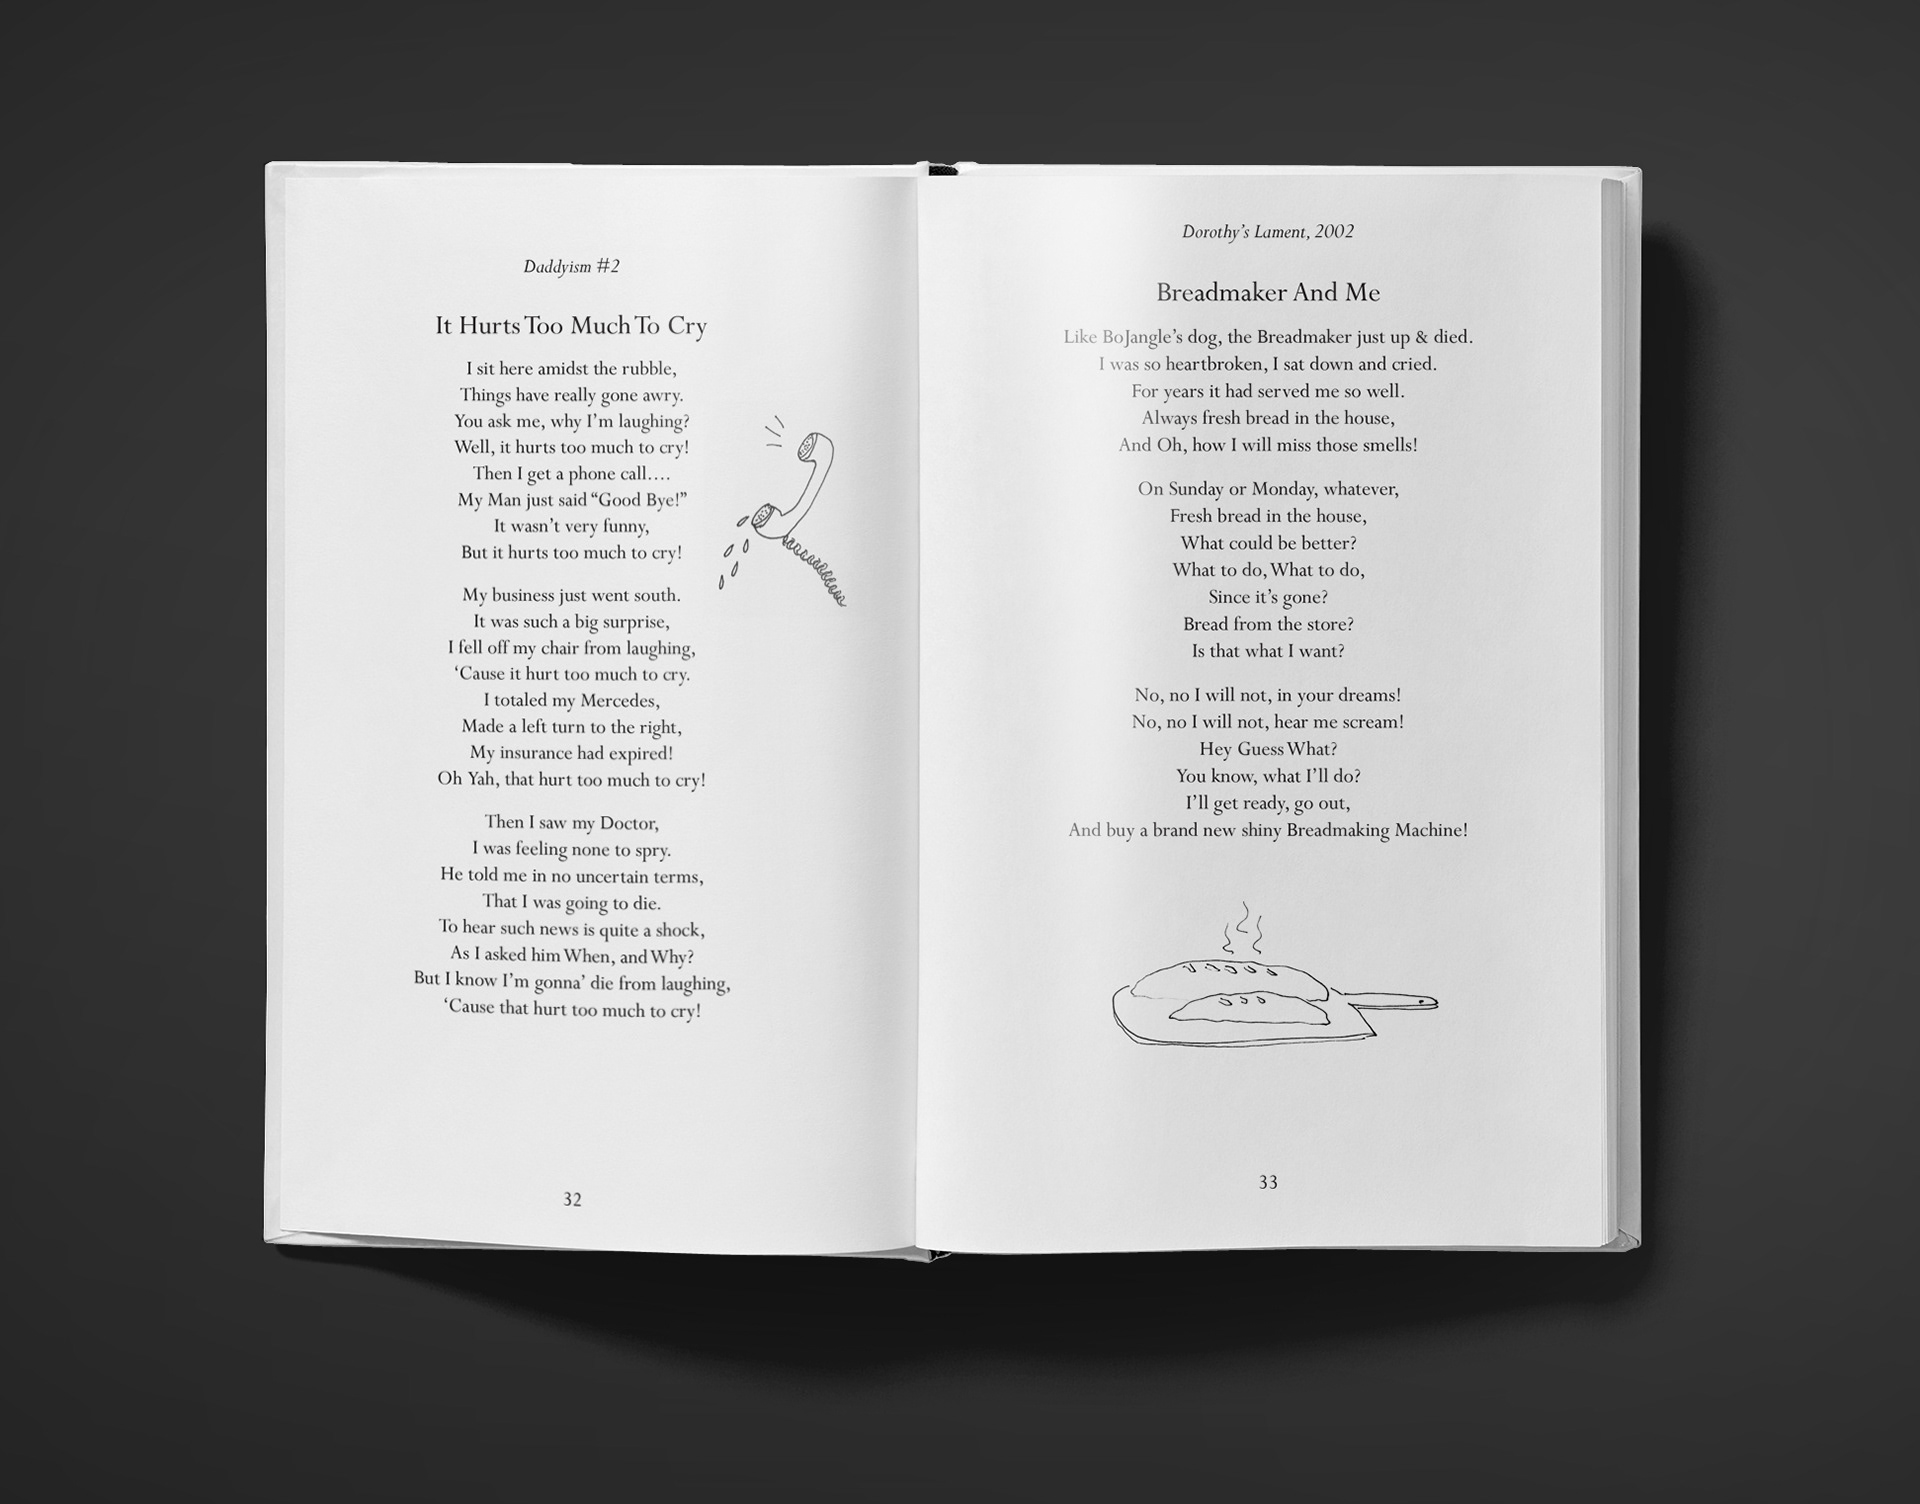 Daddyism #2
It Hurts Too Much To Cry
I sit here amidst the rubble,
Things have really gone awry.
You ask me, why I'm laughing?
Well, it hurts too much to cry!
Then I get a phone call....
My Man just said “Good Bye!”
It wasn't very funny,
But it hurts too much to cry!
My business just went south.
It was such a big surprise,
I fell off my chair from laughing,
‘Cause it hurt too much to cry.
I totaled my Mercedes,
Made a left turn to the right,
My insurance had expired!
Oh Yah, that hurt too much to cry!
Then I saw my Doctor,
I was feeling none to spry.
He told me in no uncertain terms,
That I was going to die.
To hear such news is quite a shock,
As I asked him When, and Why?
But I know I'm gonna’ die from laughing,
‘Cause that hurt too much to cry!
32
Dorothy’s Lament, 2002
Breadmaker And Me
Like BoJangle’s dog, the Breadmaker just up & died.
I was so heartbroken, I sat down and cried.
For years it had served me so well.
Always fresh bread in the house,
And Oh, how I will miss those smells!
On Sunday or Monday, whatever,
Fresh bread in the house,
What could be better?
What to do, What to do,
Since it’s gone?
Bread from the store?
Is that what I want?
No, no I will not, in your dreams!
No, no I will not, hear me scream!
Hey Guess What?
You know, what I’ll do?
I’ll get ready, go out,
And buy a brand new shiny Breadmaking Machine!
33